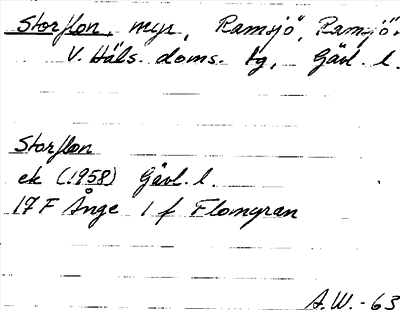 Storflon, myr, Ramsjö, Ramsjö,
V. Häls. doms. tg, Gävl. l.
Storflon
ek (1958) Gävl. l.
17 F Ånge 1 f Flomyran
A.W. -63